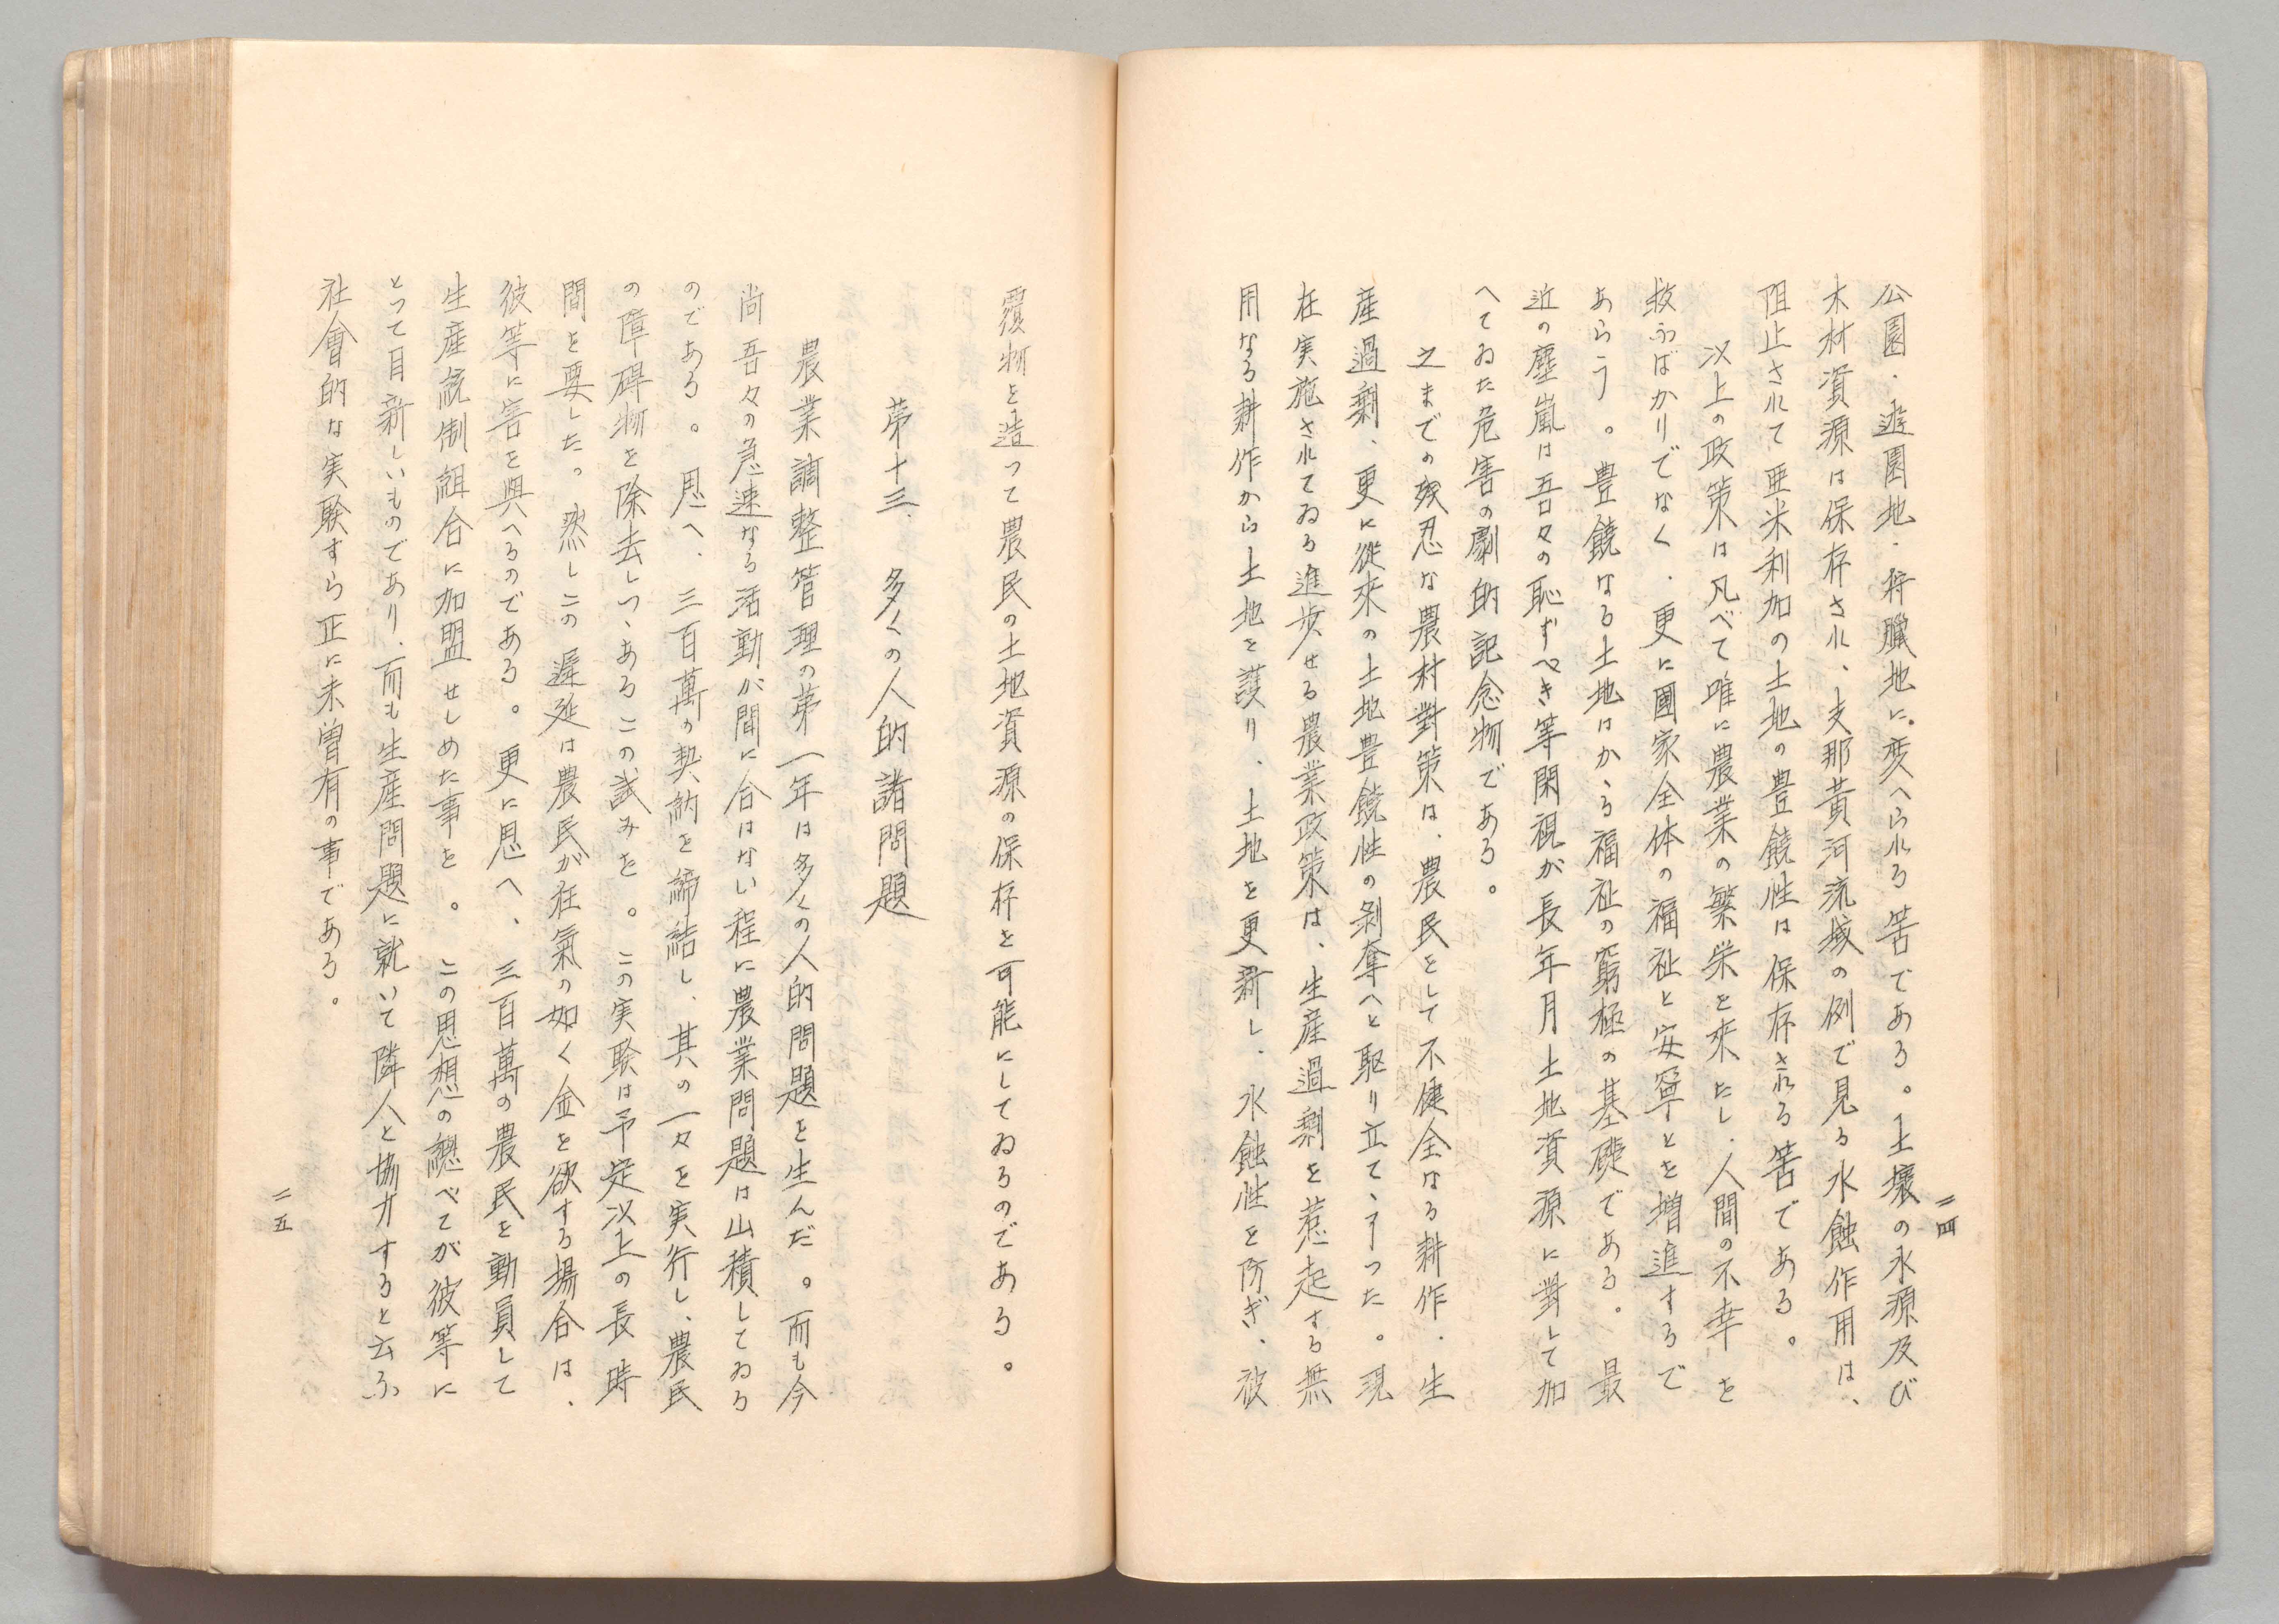 二四
公園．遊園地．狩猟地に変へられる筈である。土壌の水源及び
木材資源は保存され、支那黄河流域の例で見る水蝕作用は、
阻止されて亜米利加の土地の豊饒性は保存される筈である。
以上の政策は凡べて唯に農業の繁栄を来たし、人間の不幸を
救ふばかりでなく、更に國家全体の福祉と安寧とを増進するで
あらう。豊饒なる土地はかゝる福祉の窮極の基礎である。最
近の塵嵐は吾々の恥ずべき等閑視が長年月土地資源に對して加
へてゐた危害の劇的記念物である。
之までの残忍な農村對策は、農民をして不健全なる耕作．生
産過剰、更に從來の土地豊饒性の剝奪へと駆り立てゝ了つた。現
在実施されてゐる進歩せる農業政策は、生産過剰を惹起する無
用なる耕作から土地を護り、土地を更新し、水蝕性を防ぎ、被
覆物を造つて農民の土地資源の保存を可能にしてゐるのである。
第十三．多くの人的諸問題
農業調整管理の第一年は多くの人的問題を生んだ。而も今
尚吾々の急速なる活動が間に合はない程に農業問題は山積してゐる
のである。思へ、三百萬の契約を締結し、其の一々を実行し、農民
の障碍物を除去しつゝあるこの試みを。この実験は予定以上の長時
間を要した。然しこの遅延は農民が在氣の如く金を欲する場合は、
彼等に害を與へるのである。更に思へ、三百萬の農民を動員して
生産統制組合に加盟せしめた事を。この思想の總べてが彼等に
とつて目新しいものであり、而も生産問題に就いて隣人と協力すると云ふ
社會的な実験すら正に未曽有の事である。
二五